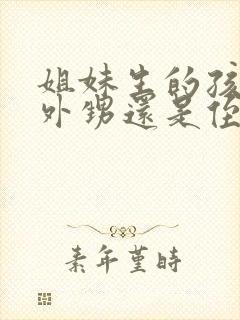 姐妹生的孩
外甥還是侄
素年堇時